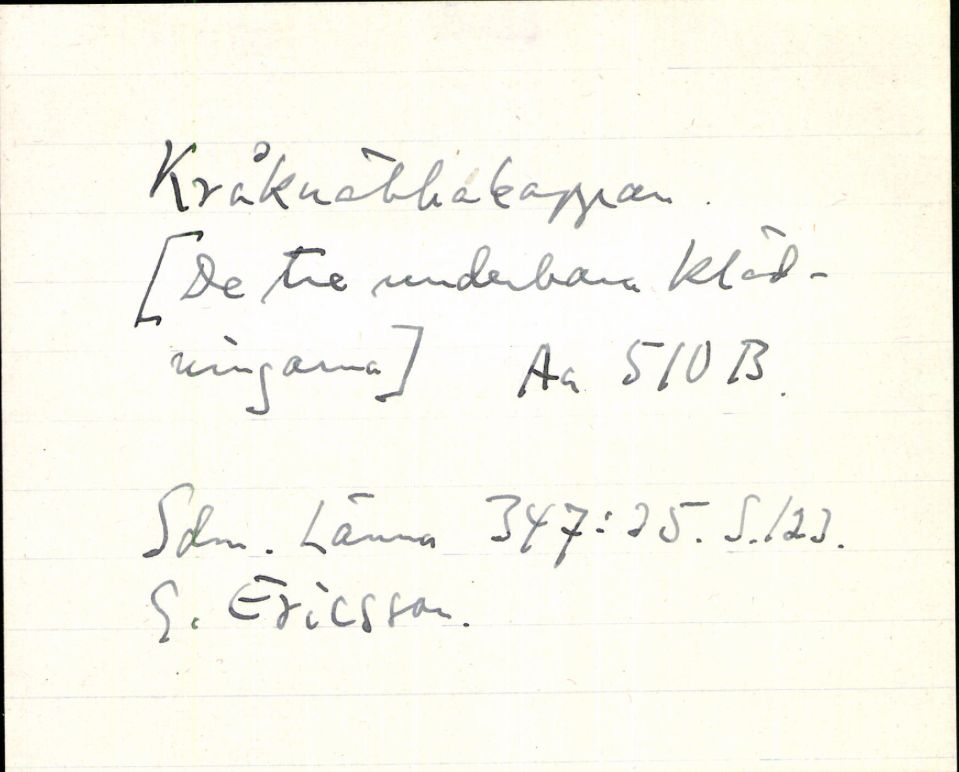 Kråknäbbakappan.
[De tre underbara kläd-
ningarna] Aa 510 B.
Sdm. Länna 347:25. S.123.
G. Ericsson.